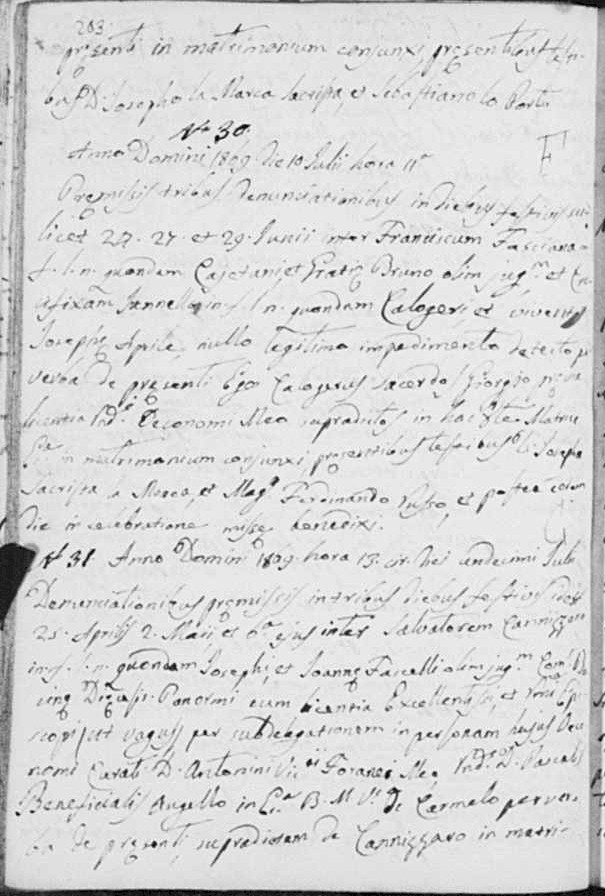 203
presenti in matrimonium conjunxi presentibus testi-
bus D. Josepho la Marca sacrista, et Sebastiano lo Porto
N.o 30.
Anno Domini 1809 die 10 Julii hora 11a
Premissis tribus denunciationibus in diebus festivis sci-
licet 24. 27. et 29. Junii inter Franciscum Fasciana
f. l. n. quondam Cajetani et Gratie Bruno olim jug.m et
Jannello f. l. n. quondam Calogeri, et viventis
Josephe Aprile, nullo legitimo impedimento detecto p
verba de presenti Ego Calogerus Sacerdos Giorgio
licentia Oeconomi Meo supradictos in hac Matri
in matrimonium conjunxi presentibus testibus Josepho
Sacrista la Marca, et Mag.r Ferdinando Russo, et postea eodem
die in celebratione misse benedixi.
N 31 Anno Domini 1809. hora 13. cir. diei undecimi Julii
Denunciationibus premissis in tribus diebus festivis
25. Aprilis 2. Maii, et ejus inter Salvatorem Cannizzaro
quondam Josephi, et Joanne Fascelli olim jug.m
Panormi cum licentia Excellentis. et Epi-
scopi, ut vagus per subdelegationem in personam hujus Oeco
nomi Curati D. Antonini Foranei Meo Pascalis
Beneficialis Augello in B. M. V. de Carmelo per ver-
ba de presenti, supradictum de Cannizzaro in matri-